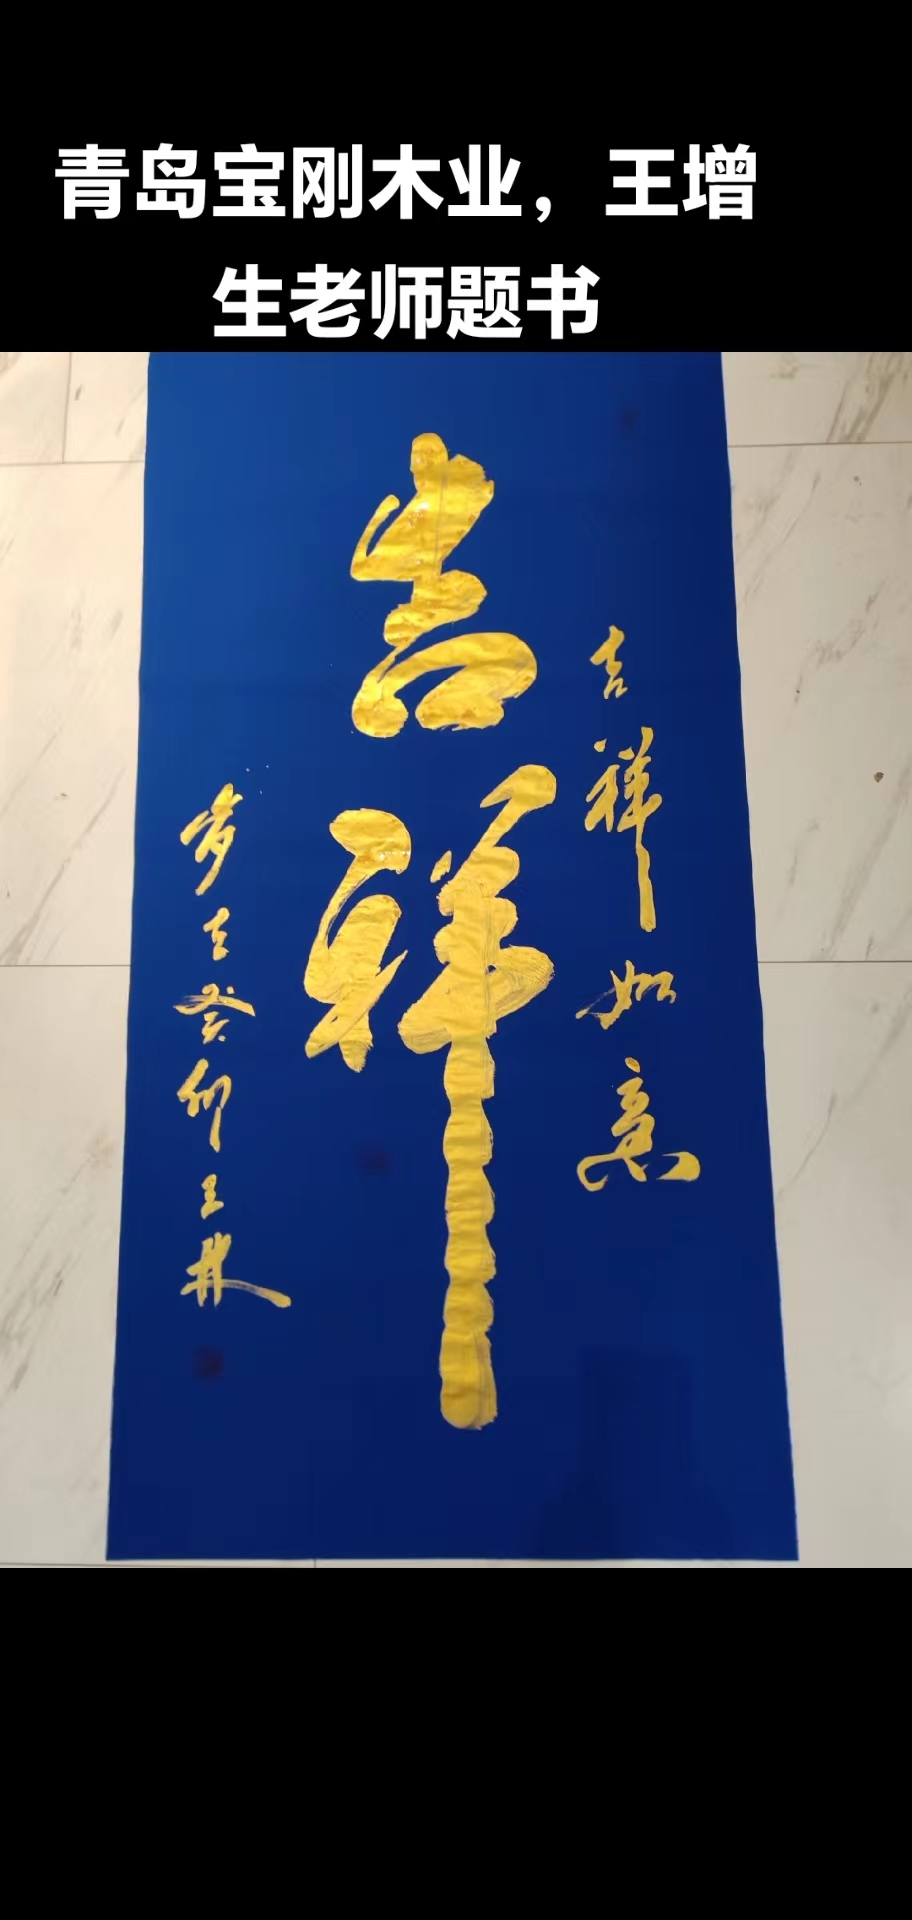 青岛宝刚木业，王增
生老师题书
吉祥如意
吉祥
岁在癸卯王林